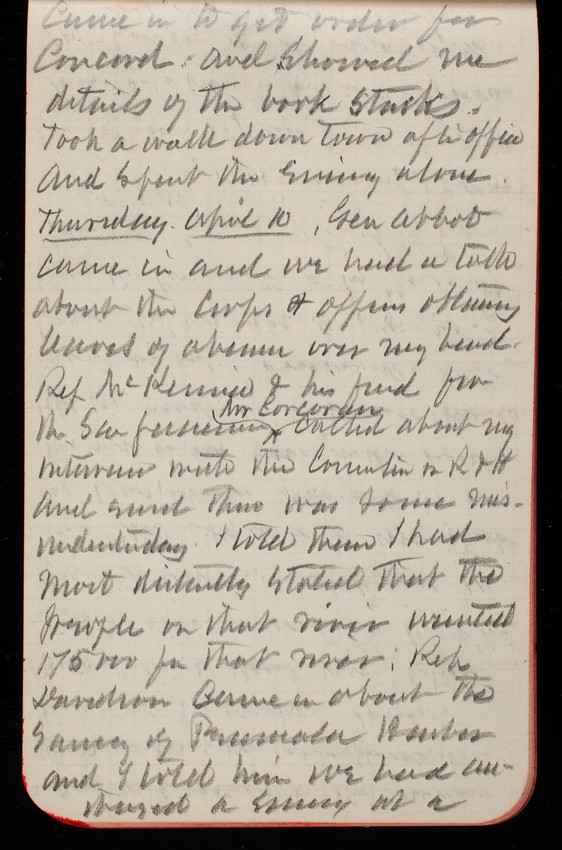 Came in to get order for
Concord. and showed me
details of the book stacks.
Took a walk down town after office
and spent the evening alone.
Thursday. April 10, Gen Abbot
came in and we had a talk
about the Corps & officers obtaining
leaves of absence over my head.
Rep McKennie & his friend from
the San
Mr Corcoran
called about my
interview with the Committee on R & H
and said there was some mis-
understanding. I told them I had
most distinctly stated that the
people on that river wanted
175 000 for that river. Rep
Davidson came in about the
Survey of Harbor
and I told him we had au-
thorized a survey at a